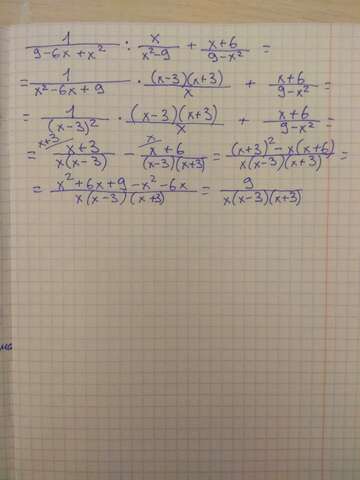 1/(9-6x+x²) : x/(x²-9) + (x+6)/(9-x²) =
= 1/(x²-6x+9) · (x-3)(x+3)/x + (x+6)/(9-x²) =
= 1/(x-3)² · (x-3)(x+3)/x + (x+6)/(9-x²) =
= ˣ⁺³⁾ (x+3)/(x(x-3)) - ˣ⁾ (x+6)/((x-3)(x+3)) = ((x+3)²-x(x+6))/(x(x-3)(x+3)) =
= (x²+6x+9-x²-6x)/(x(x-3)(x+3)) = 9/(x(x-3)(x+3))